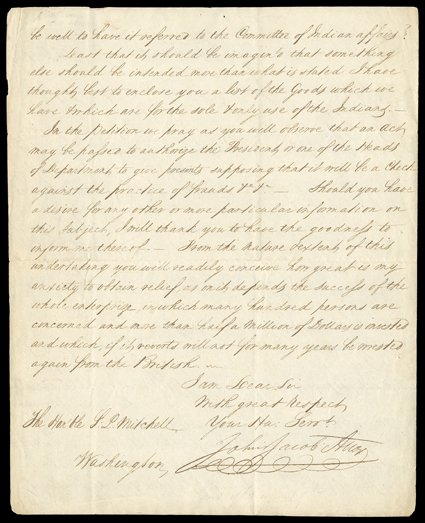 be well to have it referred to the Committee of Indian affairs?
Least that it should be imagin'd that something
else should be intended more than what is stated I have
thought best to enclose you a list of the Goods which we
have & which are for the sole & only use of the Indians. —
In the Petition we pray as you will observe that an Act
may be passed to authorize the President or one of the Heads
of Department to give permits supposing that it will be a Check
against the practice of frauds &c &c — Should you have
a desire for any other or more particular information on
this Subject, I will thank you to have the goodness to
inform me thereof. — From the nature & extent of this
undertaking you will readily conceive how great is my
anxiety to obtain relief as on it depends the success of the
whole enterprize, in which many hundred persons are
concerned and more than half a Million of Dollars is invested
and which, if it reverts will not for many years be wrested
again from the British. —
I am Dear Sir
With great Respect
The Honble S. L. Mitchell Your Hu. Servt
John Jacob Astor
Washington